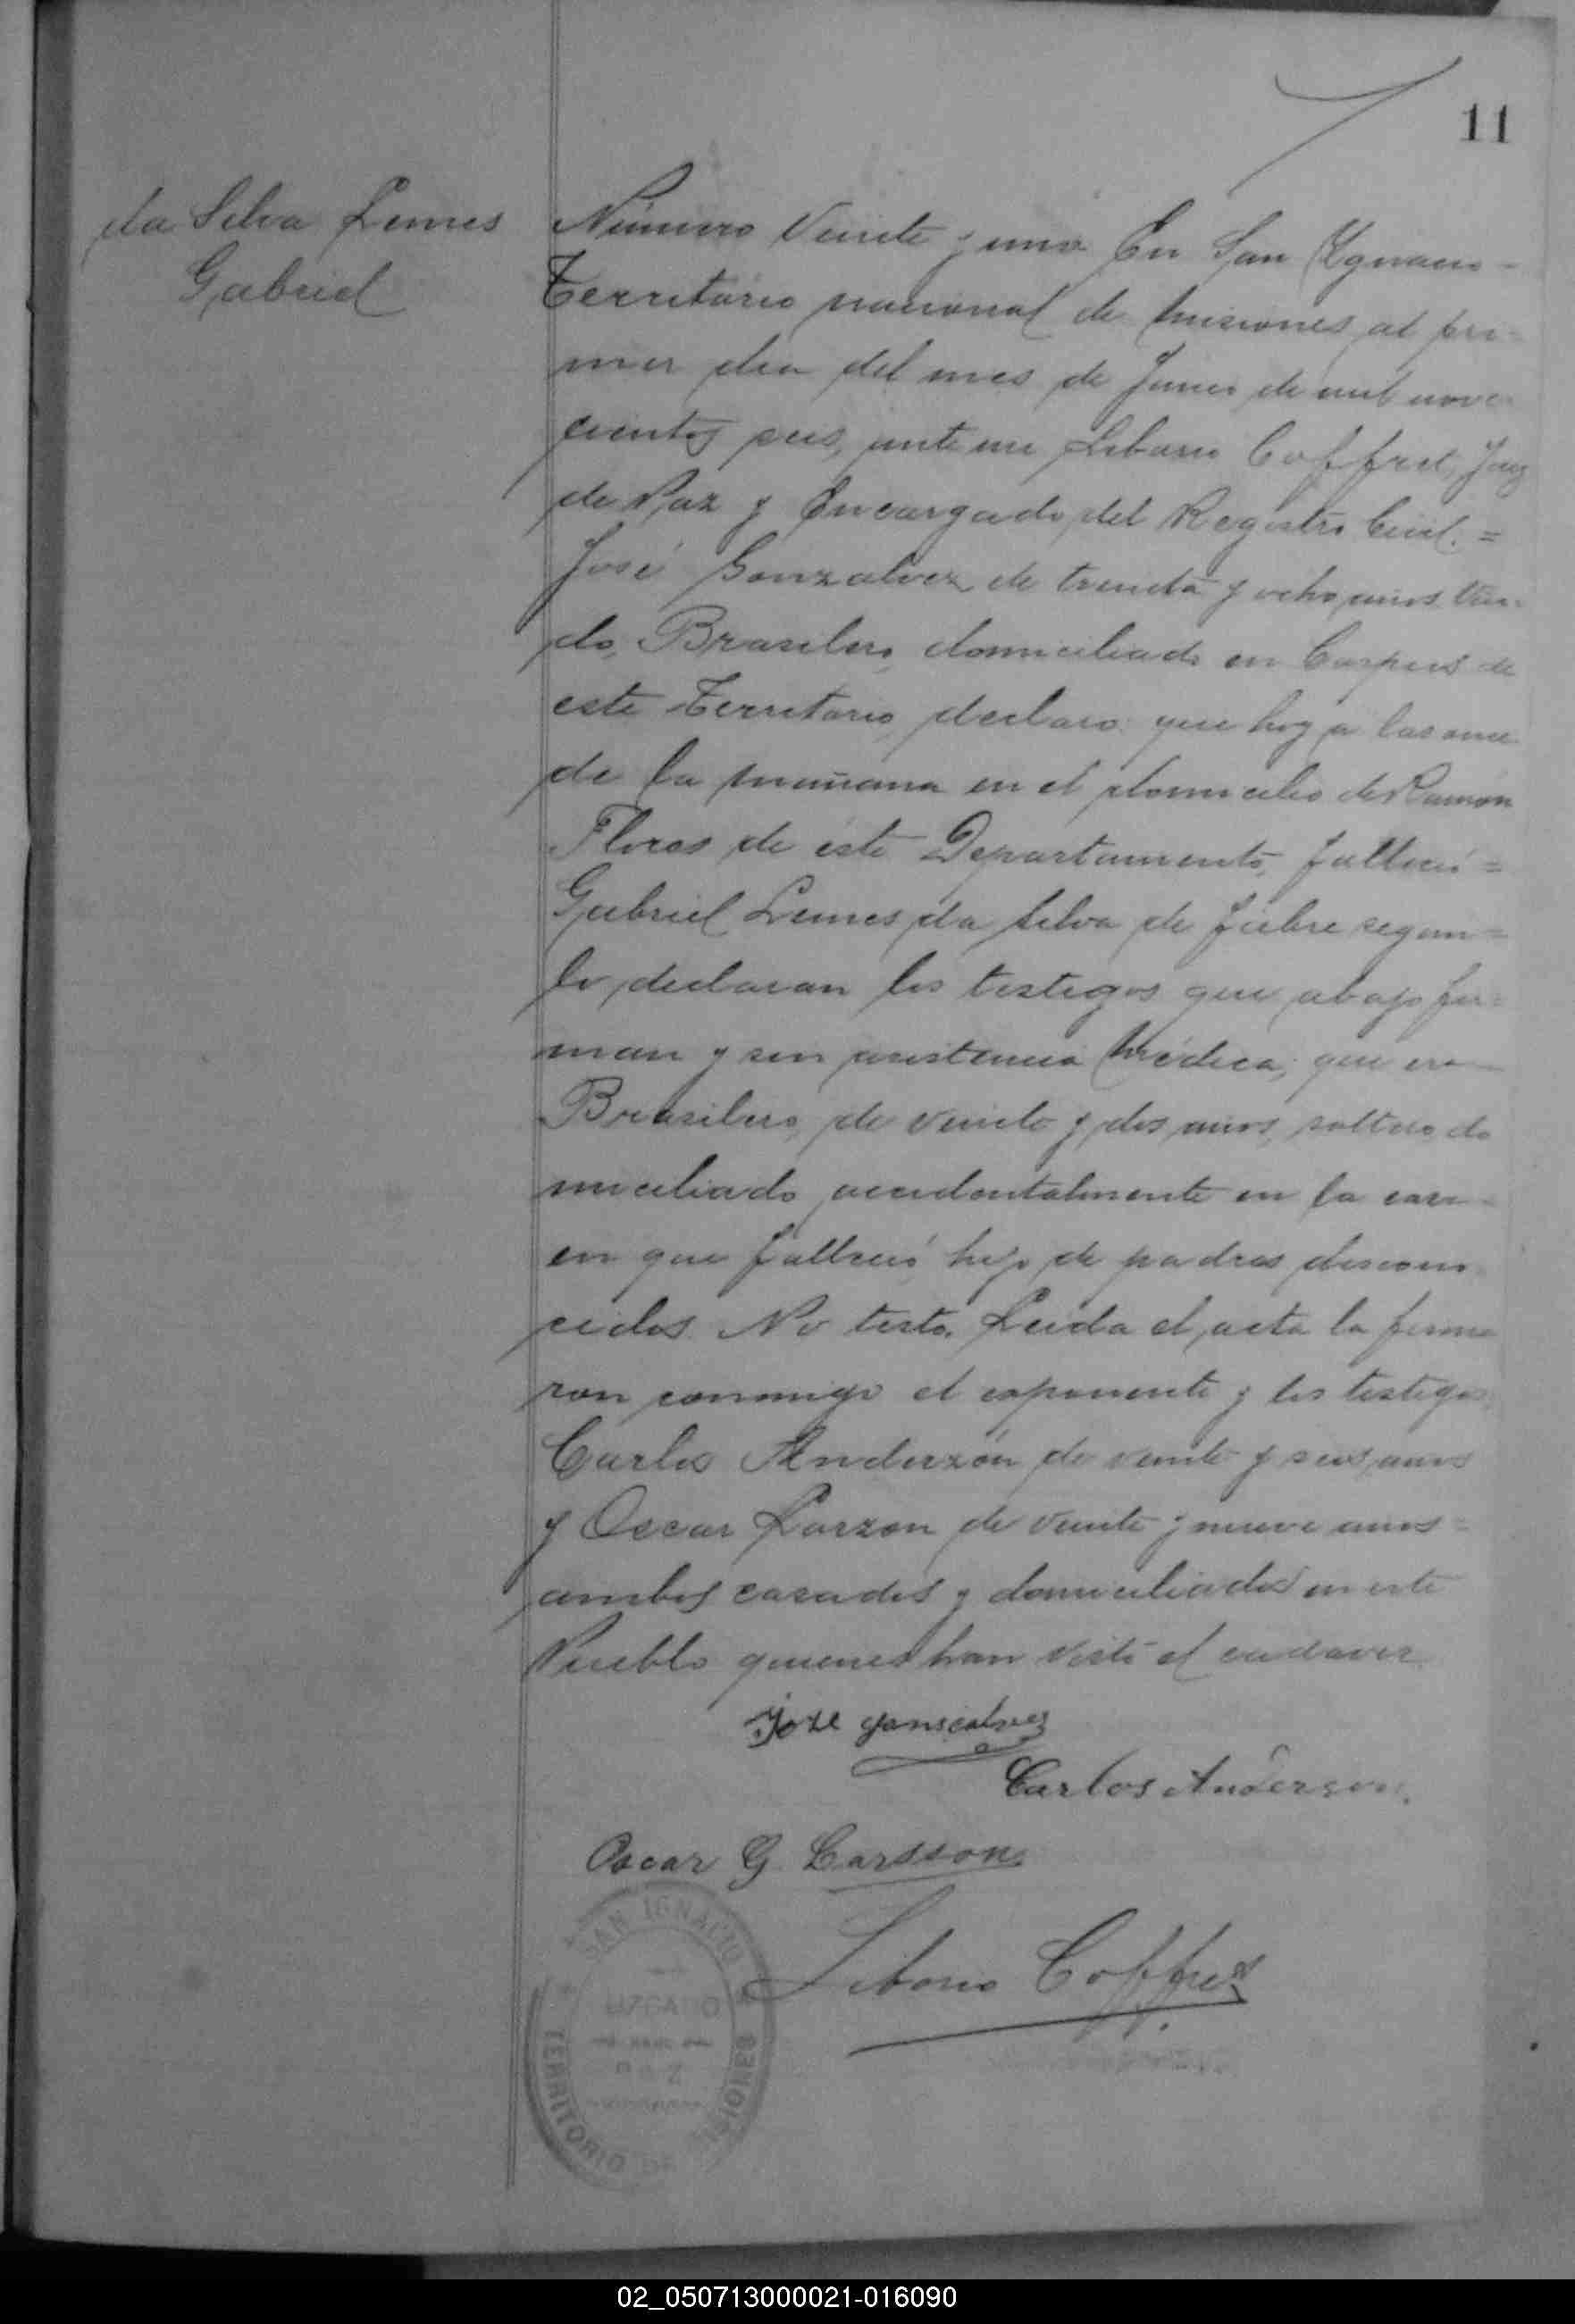 11
da Silva Lemes
Gabriel
Número Veinte y uno En San Ygnacio -
Territorio nacional de Misiones, al pri-
mer dia del mes de Junio de mil nove-
cientos seis, ante mi Liborio Coffret, Juez
de Paz y Encargado del Registro Civil. =
José Gonzalvez de treinta y ocho años, viu-
do, Brasilero, domiciliado en Corpus de
este Territorio, declaro: que hoy a las once
de la mañana en el domicilio de Ramón
Flores de este Departamento, falleció =
Gabriel Lemes da Silva de fiebre segun =
lo declaran los testigos que abajo fir=
man y sin asistencia Médica, que era
Brasilero, de veinte y dos años, soltero, do
miciliado accidentalmente en la casa
en que falleció, hijo de padres descono
cidos. No testó. Leida el acta la firma
ron conmigo el exponente y los testigos
Carlos Anderzón de veinte y seis años
y Oscar Larzon de veinte y nueve años =
ambos casados y domiciliados en este
Pueblo quienes han visto el cadaver
Joze gonsealves
Carlos Anderson.
Oscar G. Larsson
Liborio Coffret
SAN IGNACIO
JUZGADO
DE
PAZ
TERRITORIO DE MISIONES
02_050713000021-016090